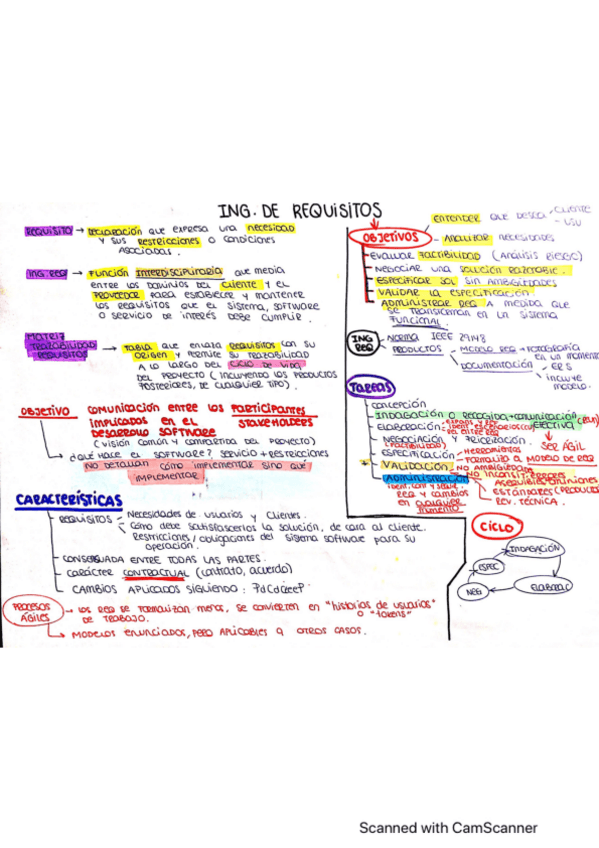 ING. DE REQUISITOS
REQUISITO → DECLARACIÓN que expresa una necesidad
y sus restricciones o condiciones
asociadas.
ING REQ → FUNCIÓN INTERDISCIPLINARIA que media
entre los dominios del CLIENTE y el
PROVEEDOR para establecer y mantener
los requisitos que el sistema, software
o servicio de interés debe cumplir.
MATRIZ
TRAZABILIDAD
REQUISITOS → TABLA que enlaza requisitos con su
origen y permite su trazabilidad
a lo largo del ciclo de vida
del proyecto (incluyendo los productos
posteriores, de cualquier tipo).
OBJETIVO COMUNICACIÓN ENTRE LOS PARTICIPANTES
IMPLICADOS EN EL STAKEHOLDERS
DESARROLLO SOFTWARE
(visión común y compartida del proyecto)
→ ¿QUÉ HACE EL SOFTWARE? SERVICIO + RESTRICCIONES
NO DETALLAN CÓMO IMPLEMENTAR SINO QUÉ
IMPLEMENTAR
CARACTERÍSTICAS
REQUISITOS Necesidades de usuarios y clientes.
Cómo debe satisfacerlos la solución, de cara al cliente.
Restricciones/obligaciones del sistema software para su
operación.
CONSENSUADA ENTRE TODAS LAS PARTES.
CARÁCTER CONTRACTUAL (contrato, acuerdo)
CAMBIOS APLICADOS SIGUIENDO:
PROCESOS
ÁGILES → LOS REQ SE FORMALIZAN MENOS, SE CONVIERTEN EN "historias de usuarios"
DE TRABAJO. o "tokens"
→ MODELOS ENUNCIADOS, PERO APLICABLES A OTROS CASOS.
OBJETIVOS
ENTENDER QUE DESEA CLIENTE
USU
ANALIZAR necesidades
EVALUAR FACTIBILIDAD (Análisis riesgo)
NEGOCIAR UNA SOLUCIÓN RAZONABLE.
ESPECIFICAR SOL SIN AMBIGÜEDADES
VALIDAR LA ESPECIFICACIÓN
ADMINISTRAR REQ A MEDIDA QUE
SE TRANSFORMAN EN LA SISTEMA
FUNCIONAL.
ING
REQ
NORMA IEEE 29148
PRODUCTOS MODELO REQ → FOTOGRAFÍA
EN UN MOMENTO
DOCUMENTACIÓN → ERS
incluye
modelo.
TAREAS
CONCEPCIÓN
INDAGACIÓN O RECOGIDA + COMUNICACIÓN
EFECTIVA
ELABORACIÓN
NEGOCIACIÓN Y PRIORIZACIÓN.
(FACTIBILIDAD)
SER ÁGIL
ESPECIFICACIÓN HERRAMIENTAS
FORMALIZA EL MODELO DE REQ
VALIDACIÓN NO AMBIGÜEDAD
NO INCONSIST, ERRORES
ASEQUIBLES
ESTÁNDARES (PRODUCTOS
REV. TÉCNICA.
ADMINISTRACIÓN
REQ Y CAMBIOS
EN CUALQUIER
MOMENTO
CICLO
INDAGACIÓN
ELABORAC
NEG
ESPEC
Scanned with CamScanner